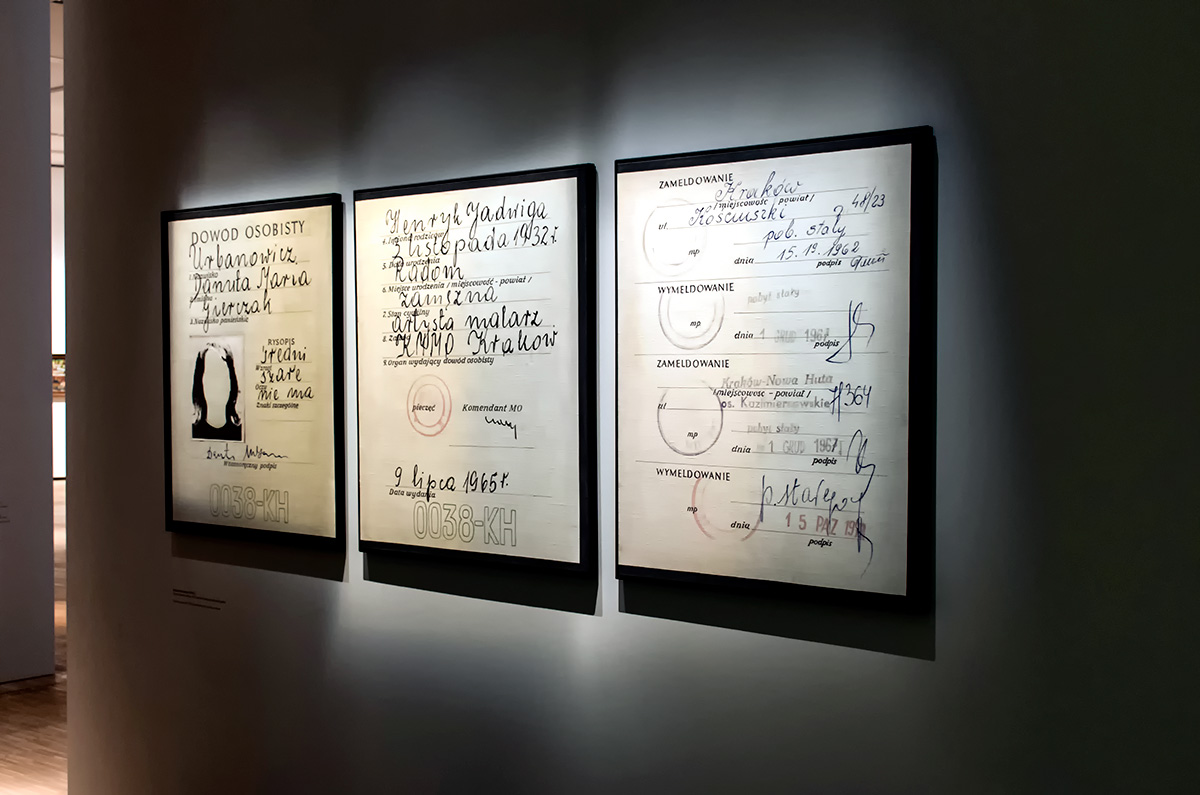 DOWOD OSOBISTY
Urbanowicz
1. Nazwisko
Danuta Maria
Gierczak
3. Nazwisko panieńskie
RYSOPIS
średni
Wzrost
szare
Oczy
nie ma
Znaki szczególne
Własnoręczny podpis
0038-KH
Henryk Jadwiga
4. Imiona rodziców
3 listopada 1932r.
5. Data urodzenia
Radom
6. Miejsce urodzenia / miejscowość - powiat /
zamężna
7. Stan cywilny
artysta malarz
KMMO Kraków
9. Organ wydający dowód osobisty
pieczęć
Komendant MO
9 lipca 1965r.
Data wydania
0038-KH
ZAMELDOWANIE
Kraków
/ miejscowość - powiat /
ul. Kościuszki 48/23
pob. stały
mp
dnia 15.
1962
podpis
WYMELDOWANIE
pobyt stały
mp
dnia 1 GRUD 1967
podpis
ZAMELDOWANIE
Kraków-Nowa Huta
/ miejscowość - powiat /
ul os. Kazimierzowskie
pobyt stały
mp
dnia - 1 GRUD 1967
podpis
WYMELDOWANIE
mp
dnia 15 PAZ
podpis